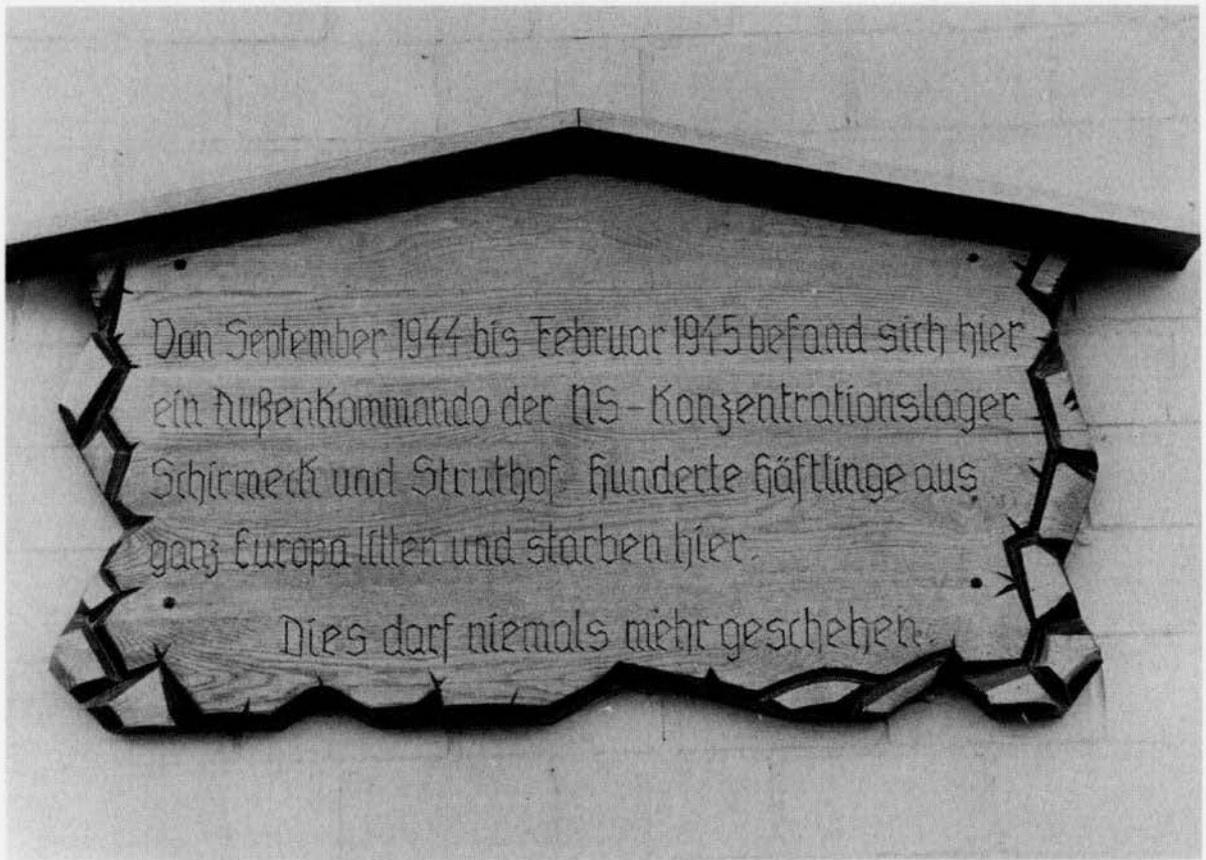 Von September 1944 bis Februar 1945 befand sich hier
ein Außenkommando der NS-Konzentrationslager
Schirmeck und Struthof. Hunderte Häftlinge aus
ganz Europa litten und starben hier.
Dies darf niemals mehr geschehen.